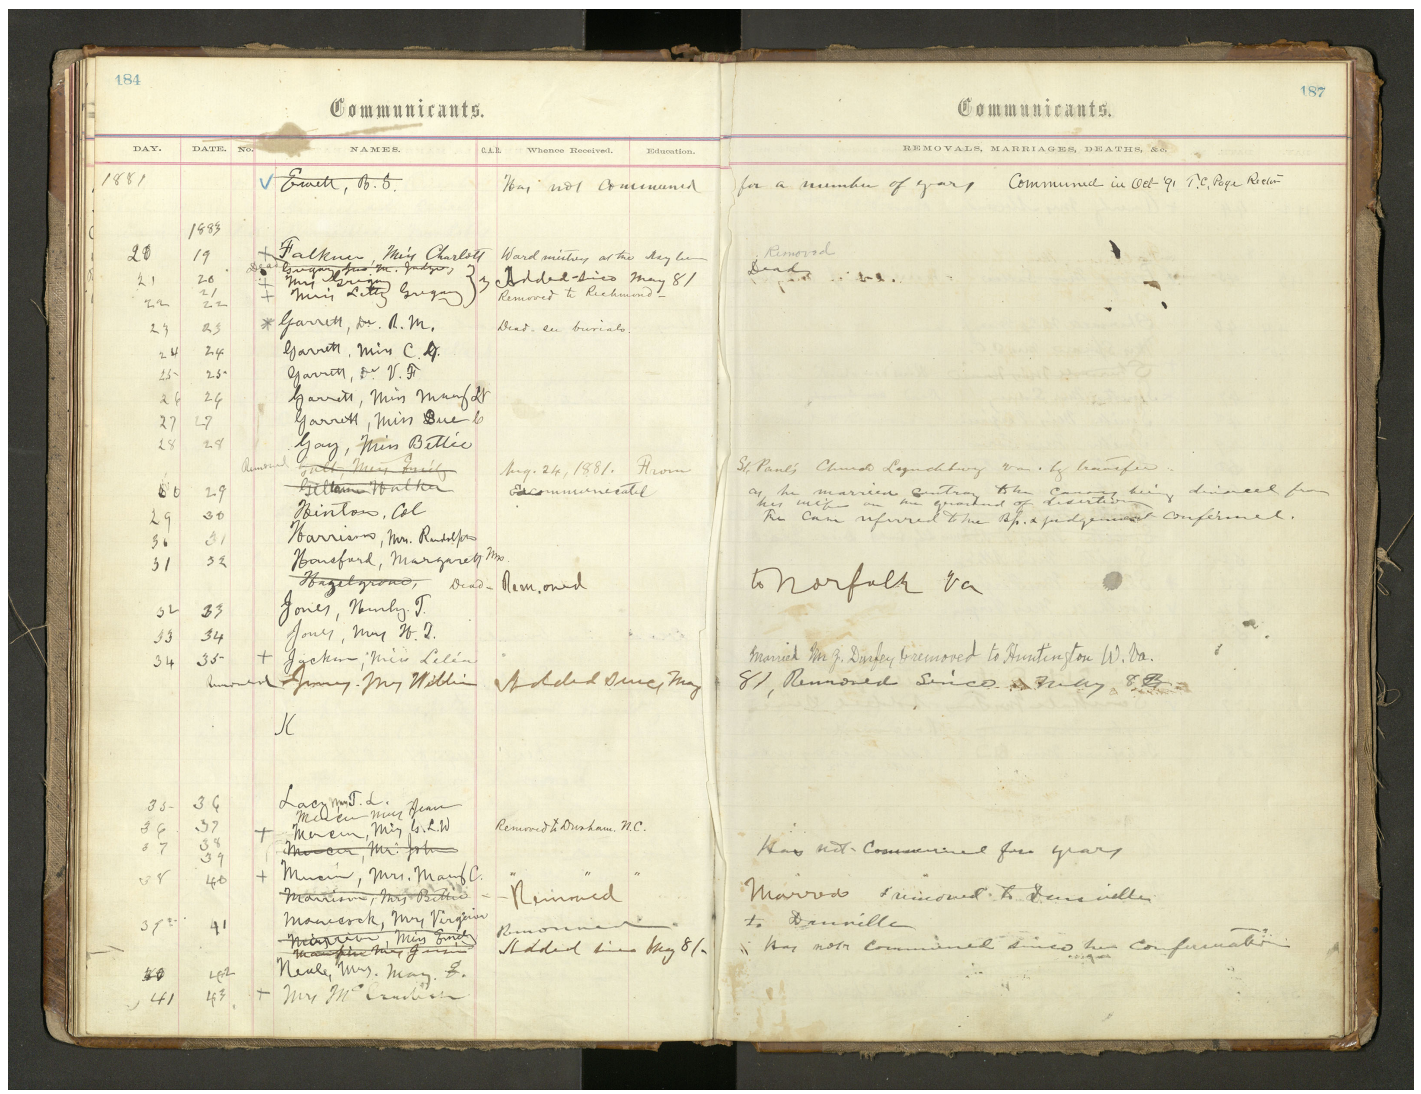 184
Communicants.
DAY. DATE. No. NAMES. C.A.R. Whence Received. Education.
1881 Ewell, B. S. Has not Communed
1883
20 19 + Falkner, Miss Charlott Ward mistress at the Asylum
Dead Gregory Judge
21 20 + Mrs Gregory } 3 Added since May 81
21
22 22 + Miss Letty Gregory Removed to Richmond
23 23 * Garrett, Dr. R. M. Dead. see burials.
24 24 Garrett, Miss C. G.
25 25 Garrett, Dr V. F
26 26 Garrett, Miss Mary
27 27 Garrett, Miss Sue C
28 28 Gay, Miss Bettie
Removed Galt, Miss Emily Aug. 24, 1881. From
29 Walker Excommunicated
29 30 Hinton, Col
30 31 Harrison, Mrs. Randolph
31 32 Honsford, Margarett Mrs.
Hazelgrove, Dead - Removed
32 33 Jones, Henly. T.
33 34 Jones, Mrs H. T.
34 35 + Jackson, Miss Lelia
Removed Mrs Willie Added Since May
K
35 36 Lacy, Mrs T. L.
Mercer Miss Jean
36 37 + Mercer, Miss C. L. W Removed to Durham. N.C.
37 38 Mercer, Mr John
39
38 40 + Mercer, Mrs. Mary C. " " "
Morrison, Mrs Bettie - Removed
41 Moncock, Mrs Virginia
Miss Emily Removed
Added since May 81.
42 Neale, Mrs. Mary. E.
41 43 + Mrs Mc
187
Communicants.
REMOVALS, MARRIAGES, DEATHS, &c.
for a number of years Communed in Oct '91 T. C. Page Rector
Removed
Dead
St. Paul's Church Lynchburg Va. by transfer.
as he married contrary to the Canons being divorced from
his wife on the ground of desertion
The Case referred to the Bp. & judgement confirmed.
to Norfolk Va
Married Mr J. Durfey & removed to Huntington W. Va.
81, Removed Since
Has not Communed for years
Married & removed to Danville
to Danville
Has not Communed since her Confirmation